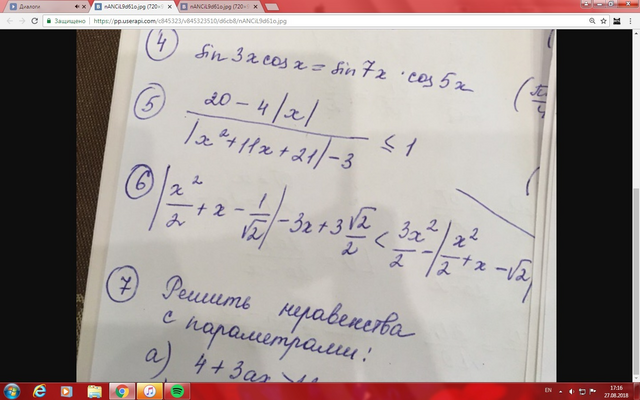 Диалоги
nANCiL9d61o.jpg (720×
nANCiL9d61o.jpg (720×
Защищено https://pp.userapi.com/c845323/v845323510/d6cb8/nANCiL9d61o.jpg
4 sin 3x cos x = sin 7x · cos 5x
5 (20 - 4|x|) / (|x² + 11x + 21| - 3) ≤ 1
6 |x²/2 + x - 1/√2| - 3x + 3√2/2 < 3x²/2 - |x²/2 + x - √2|
7 Решить неравенства
с параметрами:
а) 4 + 3ax
EN
17:16
27.08.2018